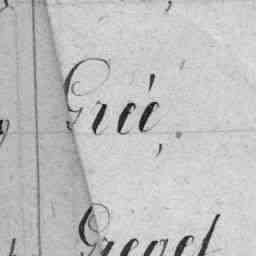 Greé,
Greget